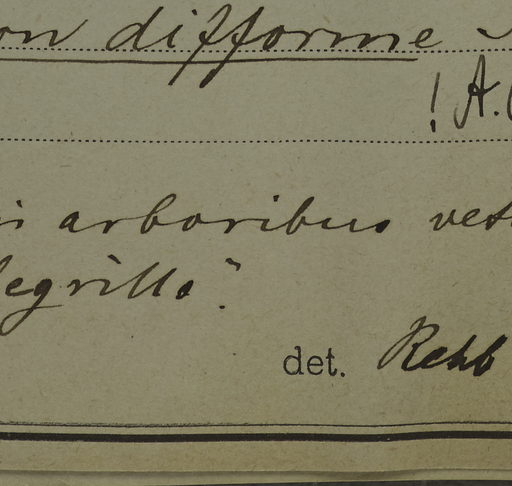 on difforme
! A.
is arboribus vet
legrillo".
det. Rehb